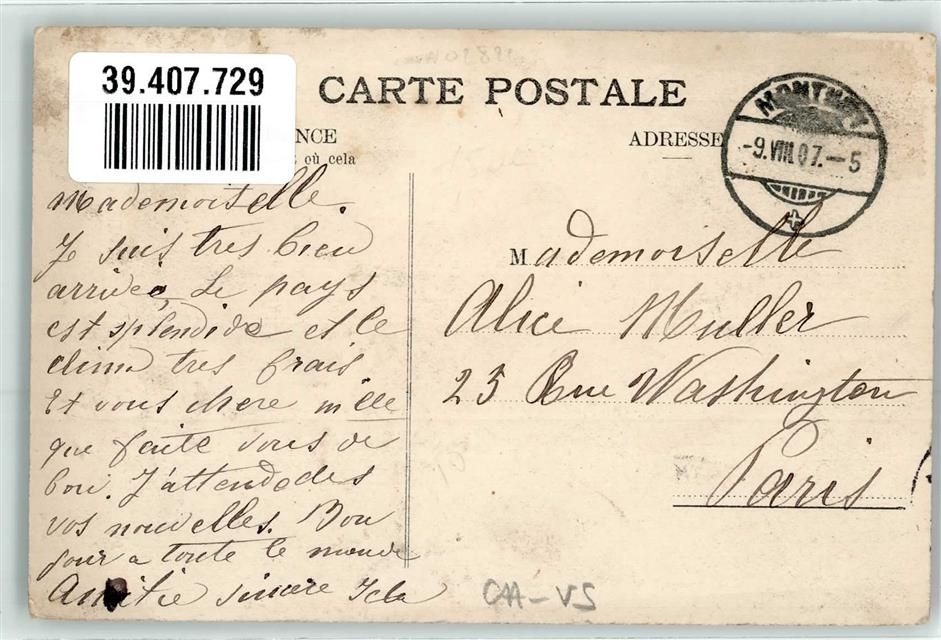 39.407.729
CARTE POSTALE
NCE
ADRESSE
où cela
-9.VIII.07.-5
Mademoiselle.
Je suis tres bien
arrivée, Le pays
est splendide et le
clima tres frais
Et vous chere mlle
que faite vous de
bon. J'attend des
vos nouvelles. Bon
jour a toute le monde
Amitie sincere
Mademoiselle
Alice Muller
25 Rue Washington
Paris
CAA-VS